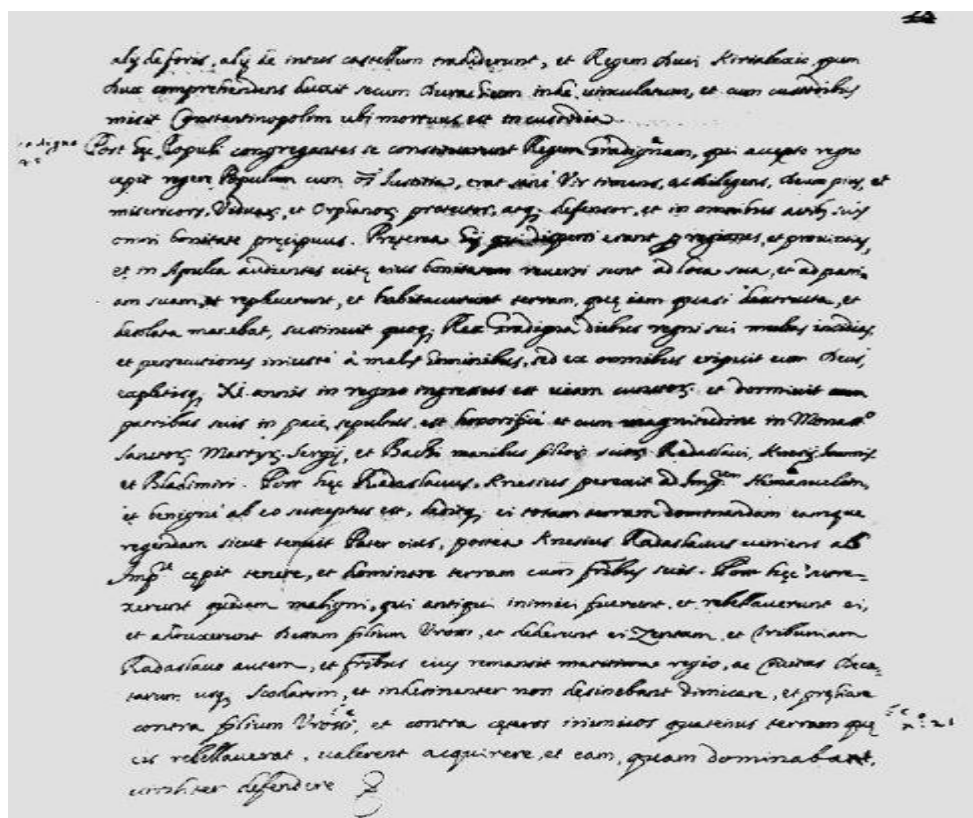 alij de foris, alij de intus castellum tradiderunt, et Regem duci Kirialexio, quem
dux comprehendens duxit secum Durachium inde vinculatum, et cum custodibus
misit Constantinopolim ubi mortuus est in custodia.
Post hęc Populi congregantes se constituerunt Regem Gradignam, qui accepto regno
cępit regere Populum cum Iustitia, erat Vir timens, ac diligens, Deum pius, et
misericors, Viduarz, et Orphanorz protector, atq; defensor, et in omnibus suis
omni bonitate pręcipuus. Pręterea hij qui dispersi erant p regiones, et provincias,
et in Apulia audientes vitę eius bonitatem reversi sunt ad loca sua, et ad patri-
am suam, et repleverunt, et habitaverunt terram, quę iam quasi destructa, et
desolata manebat, sustinuit quoq; Rex Gradigna diebus regni sui multas insidias,
et persecutiones iniuste à malis hominibus, sed ex omnibus eripuit eum Deus,
expletisq; XI. annis in regno ingressus est viam cunctorz et dormivit cum
patribus suis in pace, sepultus est honorifice et cum magnitudine in Monasto
Sanctorz Martyrz Sergij, et Bachi manibus filiorz suorz Radaslavi,
et Bladimiri. Post hęc Radaslavus Knesius perexit ad Impem Hemanuelem,
et benigne ab eo susceptus est, deditq; ei totam terram dominandam eamque
regendam sicut tenuit Pater eius, postea Knesius Radaslavus veniens ab
Impe cępit tenere, et dominare terram cum fribus suis. Post hęc surre-
xerunt quidam maligni, qui antiqui inimici fuerunt, et rebellaverunt ei,
et adduxerunt Dessam filium Vrossi, et dederunt ei Zentam, et Tribuniam
Radaslavo autem, et fribus eius remansit maritima regio, ac Civitas Deca-
tarum usq; Scodarim, et indesinenter non desinebant dimicare, et pręliare
contra filium Vrossi, et contra cęteros inimicos quatenus terram quę
eis rebellaverat, valerent acquirere, et eam, quam dominabant,
viriliter defendere